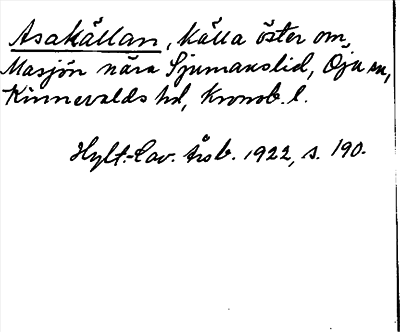 Asakällan, källa öster om
Masjön nära Sjumanslid, Öja sn,
Kinnevalds hd, Kronob. l.
Hylt.-Cav. Årsb. 1922, s. 190.